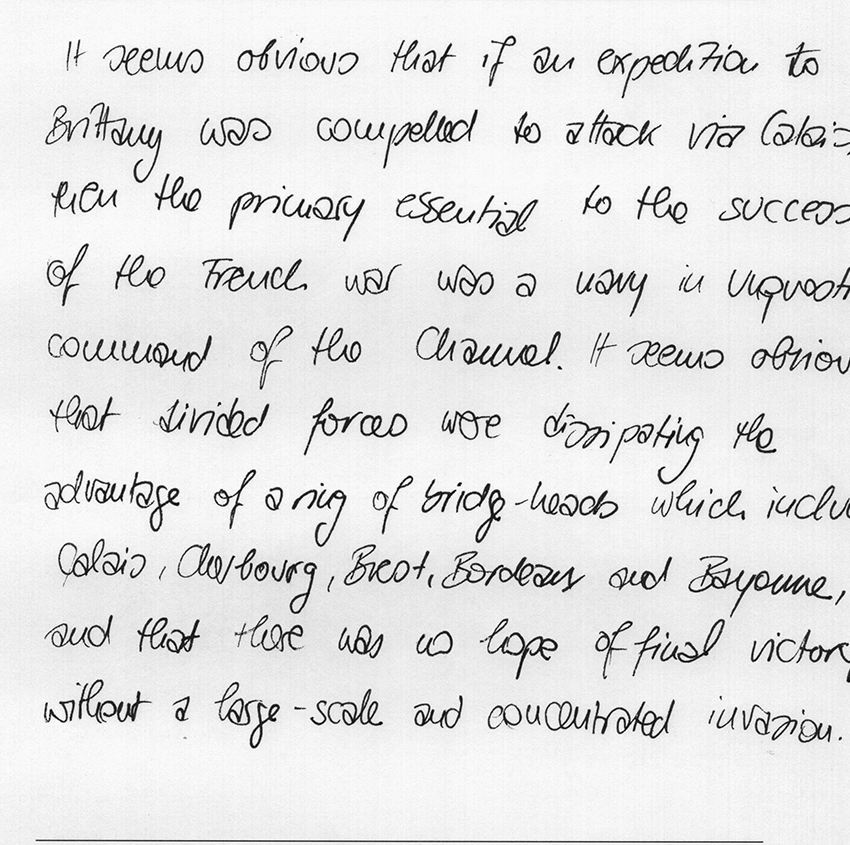 It seems obvious that if an expedition to
Brittany was compelled to attack via Calais,
then the primary essential to the success
of the French war was a navy in unquesti
command of the Channel. It seems obviou
that divided forces were dissipating the
advantage of a ring of bridge-heads which inclu
Calais, Cherbourg, Brest, Bordeaux and Bayonne,
and that there was no hope of final victory
without a large-scale and concentrated invasion.